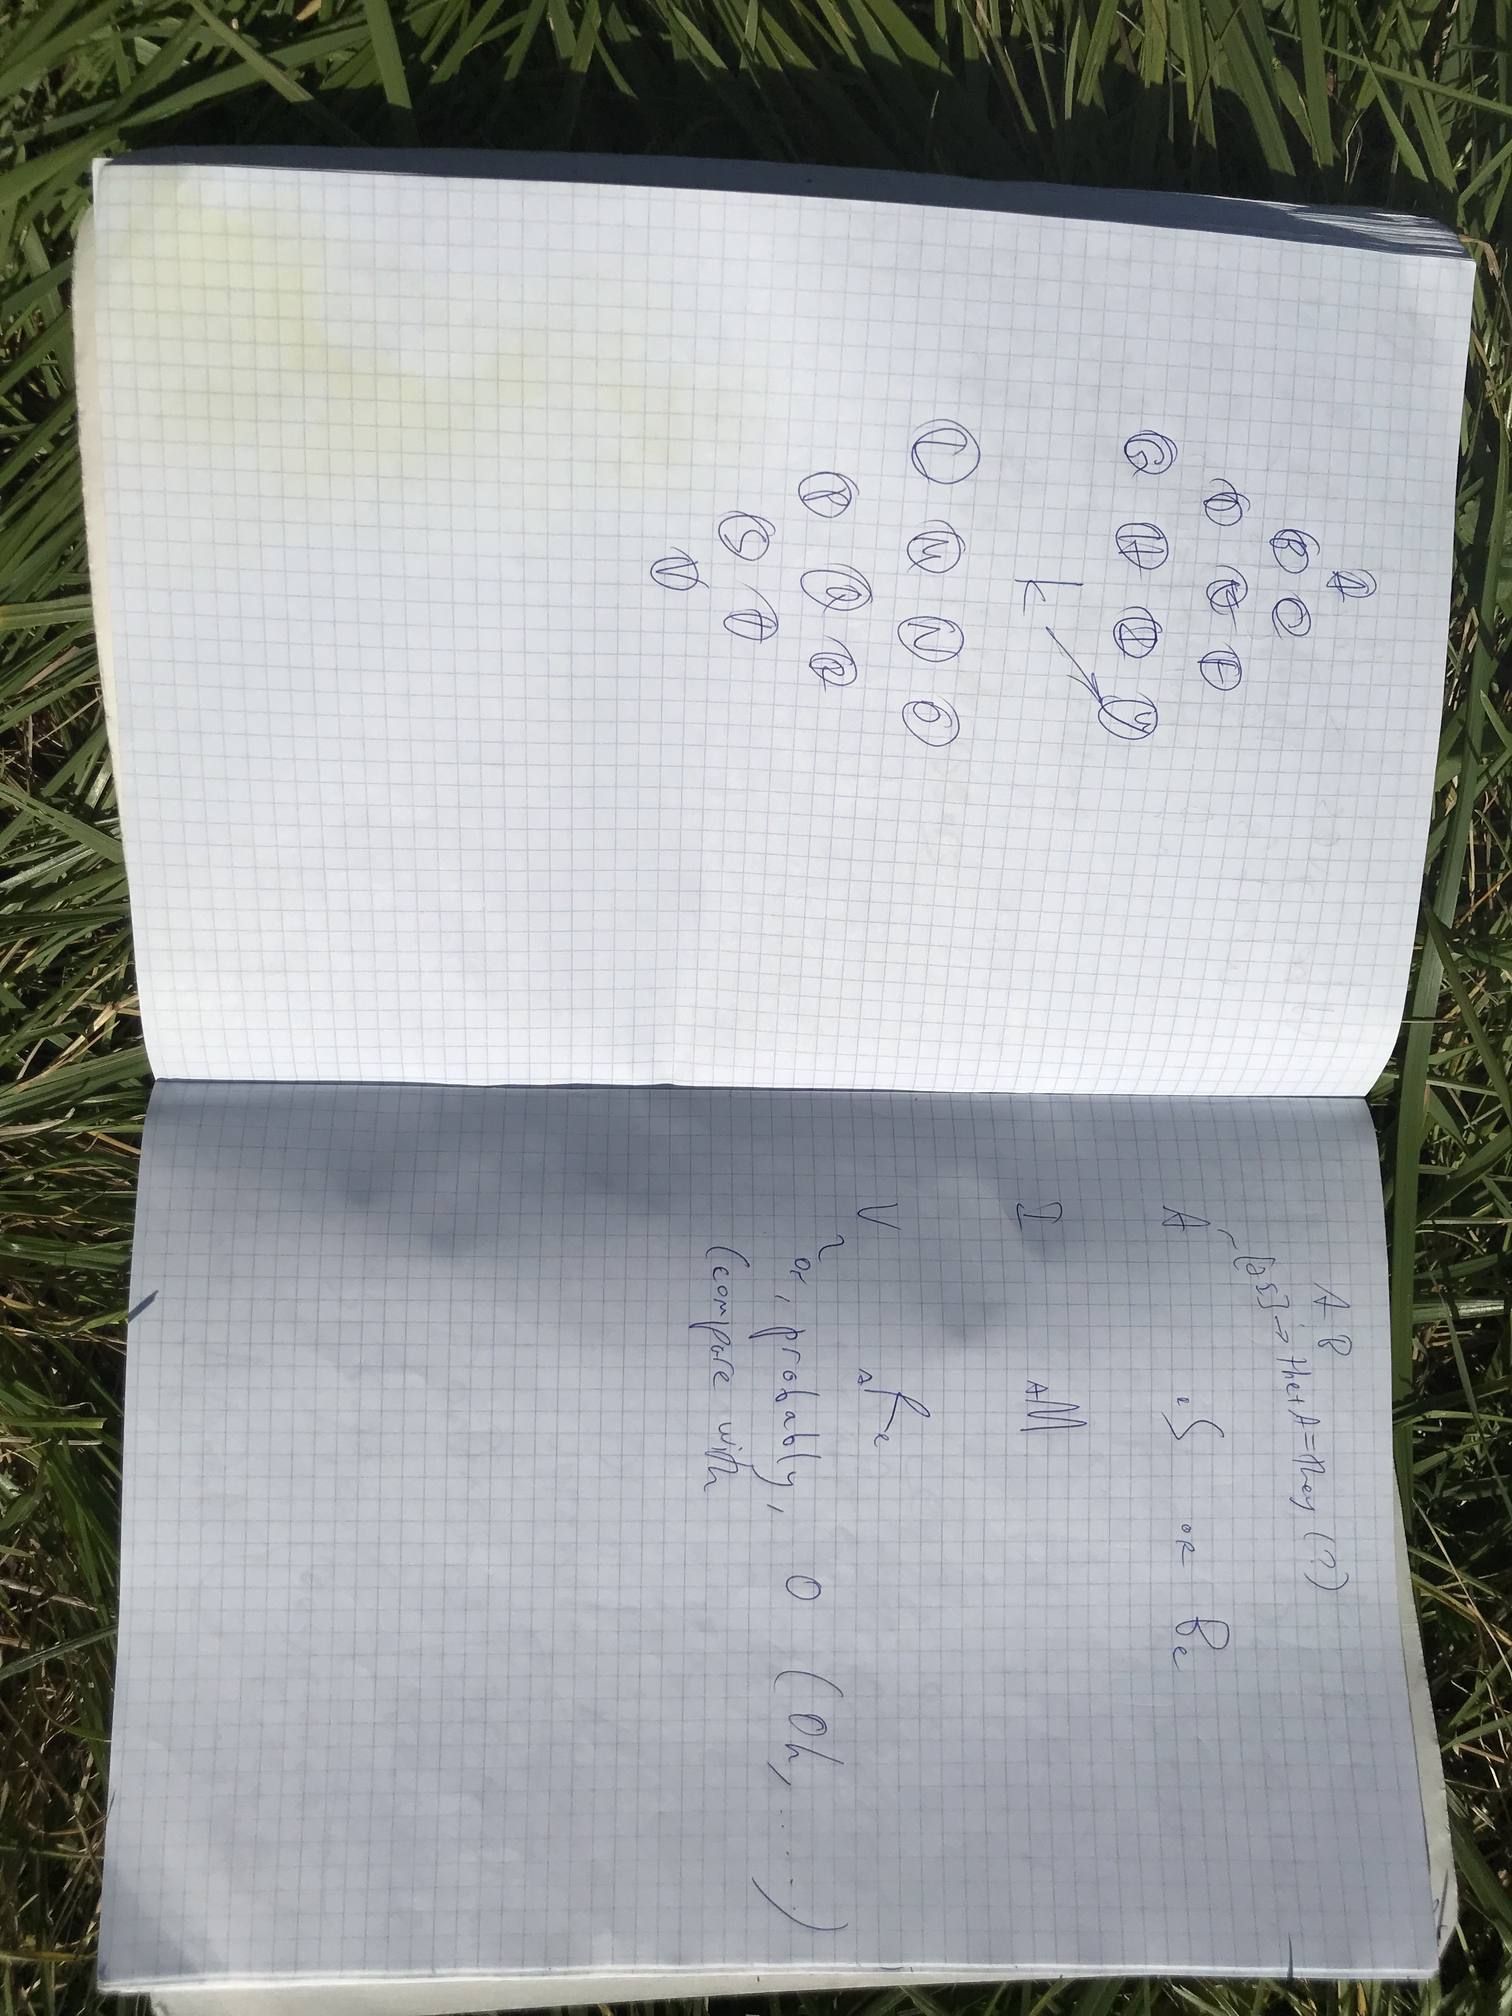 A
B C
D E F
G H I J
K
L M N O
P Q R
S T
V
A B
[əz] → then A = they (?)
A iS OR Be
I AM
V aRe
or, probably, O (Oh, ......)
(compare with